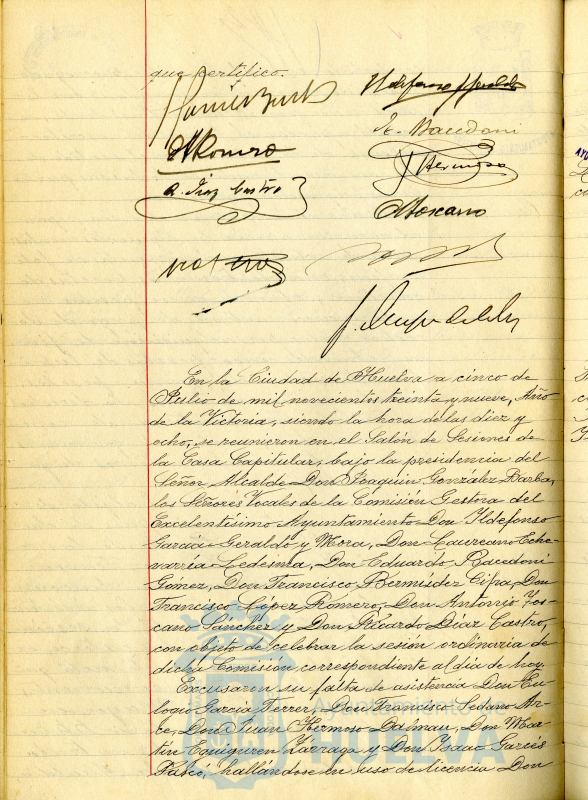 que certifico.
A Romero
E. Bacedoni
R. Díaz Castro
J Hermoso
A Toscano
En la Ciudad de Huelva a cinco de
Julio de mil novecientos treinta y nueve, Año
de la Victoria, siendo la hora de las diez y
ocho, se reunieron en el Salón de Sesiones de
la Casa Capitular, bajo la presidencia del
Señor Alcalde Don Joaquín González Barba,
los Señores Vocales de la Comisión Gestora del
Excelentísimo Ayuntamiento Don Ildefonso
García-Geraldo y Mora, Don Laureano Eche-
varría Ledesma, Don Eduardo Bacedoni
Gómez, Don Francisco Bermúdez Cifra, Don
Francisco López Romero, Don Antonio Tos-
cano Sánchez y Don Ricardo Díaz Castro,
con objeto de celebrar la sesión ordinaria de
dicha Comisión correspondiente al día de hoy.
Excusaron su falta de asistencia Don Eu-
logio García Ferrer, Don Francisco Sedano Ar-
ce, Don Juan Hermoso Dalmau, Don Mar-
tín Eguiguren Lárraga y Don Isaac Garcés
Pascó, hallándose en uso de licencia Don
HUELVA